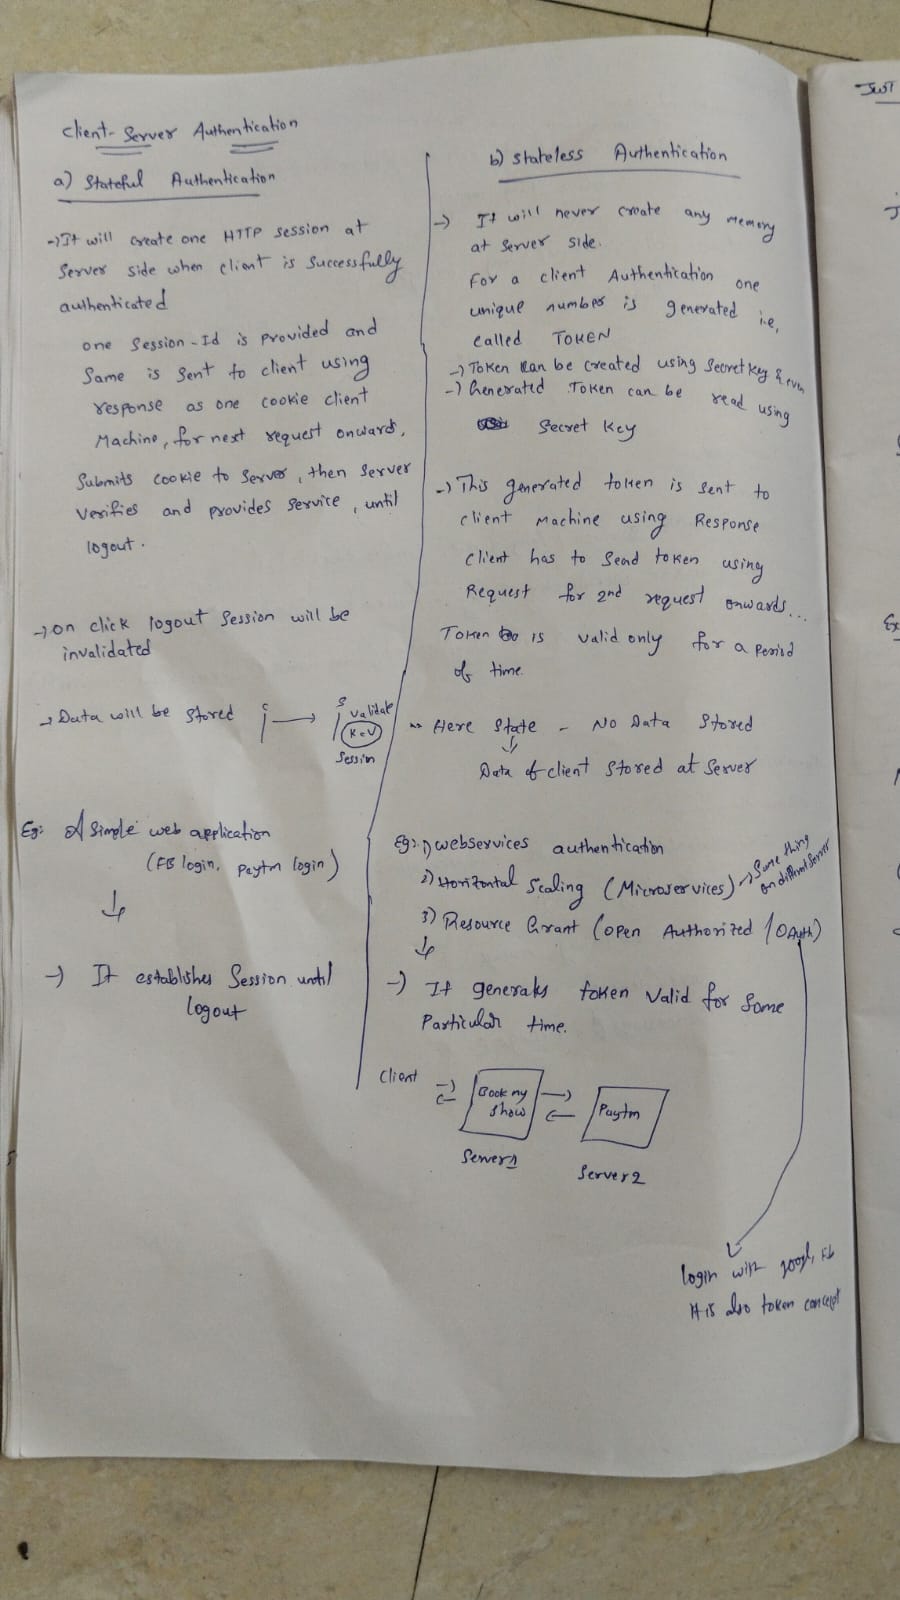 Client-Server Authentication
a) Stateful Authentication
->It will create one HTTP session at
Server side when client is successfully
authenticated
one Session-Id is provided and
Same is sent to client using
response as one cookie client
Machine, for next request onwards,
Submits cookie to Server, then server
Verifies and provides service, until
logout.
->on click logout Session will be
invalidated
-> Data will be stored
S
validate
K=V
Session
Eg: A Simple web application
(FB login, Paytm login)
-> It establishes Session until
logout
b) Stateless Authentication
-> It will never create any memory
at Server side.
For a client Authentication one
unique number is generated i.e,
called TOKEN
-> Token can be created using Secret key & even
-> Generated Token can be read using
Secret key
-> This generated token is sent to
client Machine using Response
Client has to Send token using
Request for 2nd request onwards...
Token is valid only for a Period
of time.
Here State - No Data Stored
Data of client Stored at Server
Eg: 1) webservices authentication
2) Horizontal Scaling (Microservices) -> Same thing
on different server
3) Resource Grant (open Authorized / OAuth)
-> It generates token valid for Some
Particular time.
Client
Book my
Show
Paytm
Server1
Server2
login with google, Fb
It is also token concept
JWT
Ex